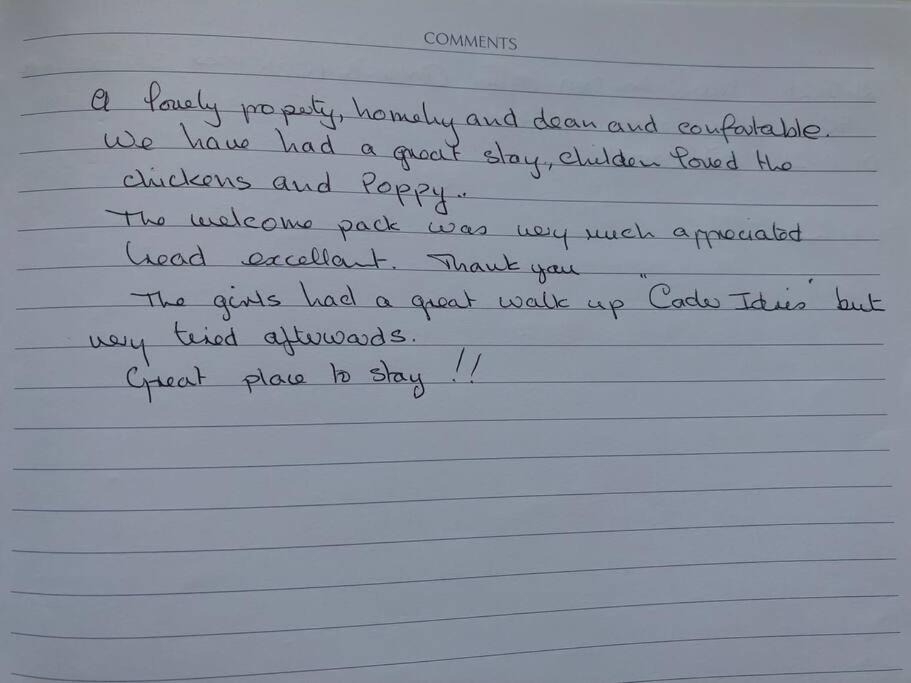 COMMENTS
A lovely propety, homely and clean and confortable.
We have had a great stay, children loved the
chickens and Poppy.
The welcome pack was very much appreciated
excellant. Thank you
The girls had a great walk up "Cader Idris" but
very tried afterwards.
Great place to stay !!